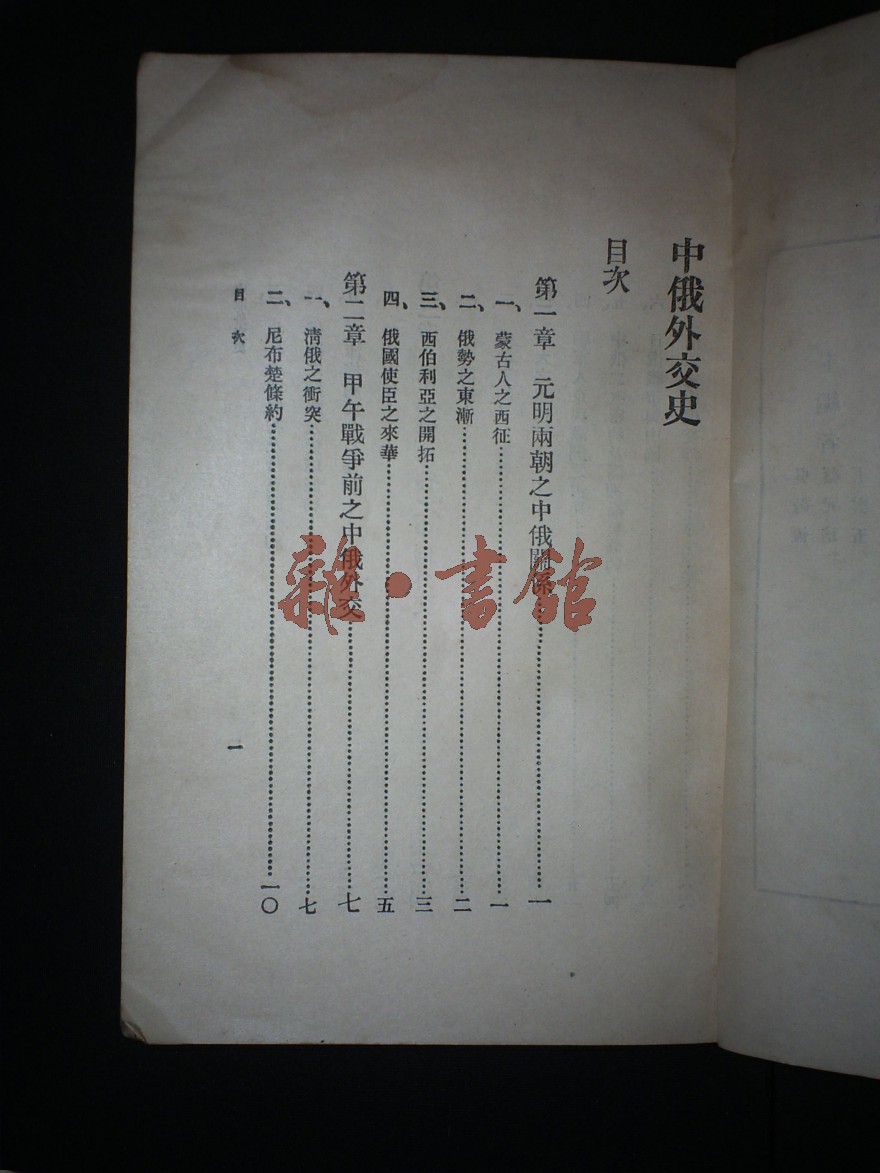 中俄外交史
目次
第一章 元明兩朝之中俄關係……一
一、蒙古人之西征……一
二、俄勢之東漸……二
三、西伯利亞之開拓……三
四、俄國使臣之來華……五
第二章 甲午戰爭前之中俄外交……七
一、清俄之衝突……七
二、尼布楚條約……一〇
目次 一
雜·書館